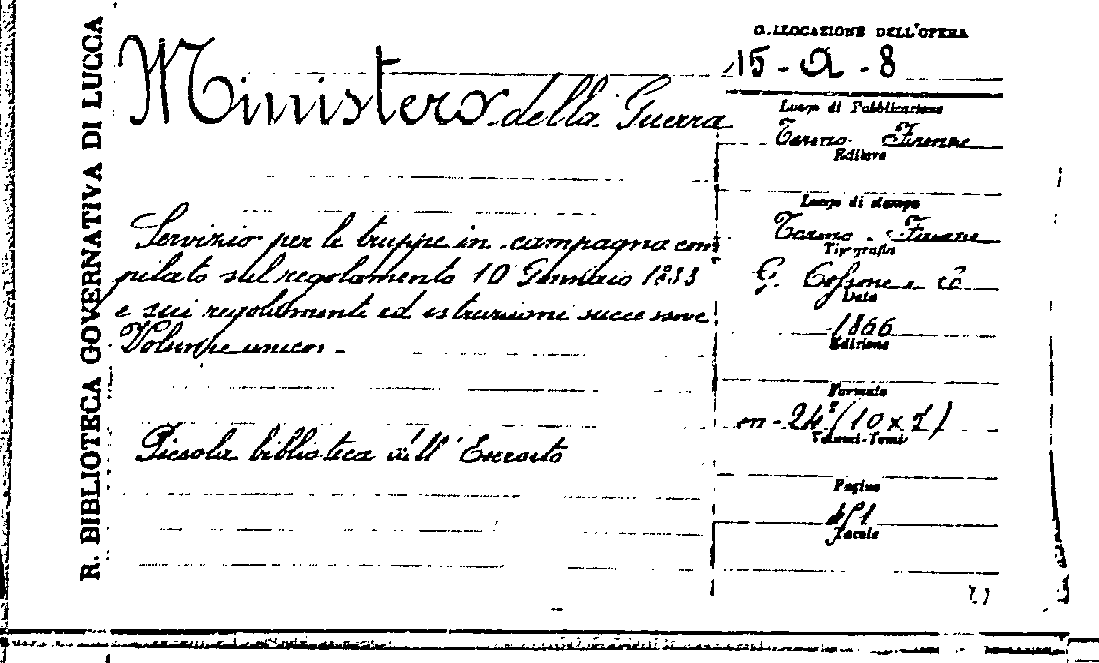 R. BIBLIOTECA GOVERNATIVA DI LUCCA
Ministero della Guerra
Servizio per le truppe in campagna com
pilato sul regolamento 10 Gennaio 1833
e sui regolamenti ed istruzioni successive.
Volume unico. -
Piccola biblioteca dell'Esercito
COLLOCAZIONE DELL'OPERA
15 - A - 8
Luogo di Pubblicazione
Torino - Firenze
Editore
Luogo di stampa
Torino - Firenze
Tipografia
G. Cassone e C°
Data
1866
Edizione
Formato
in - 24° (10 x 7)
Volumi-Tomi
Pagine
Tavole